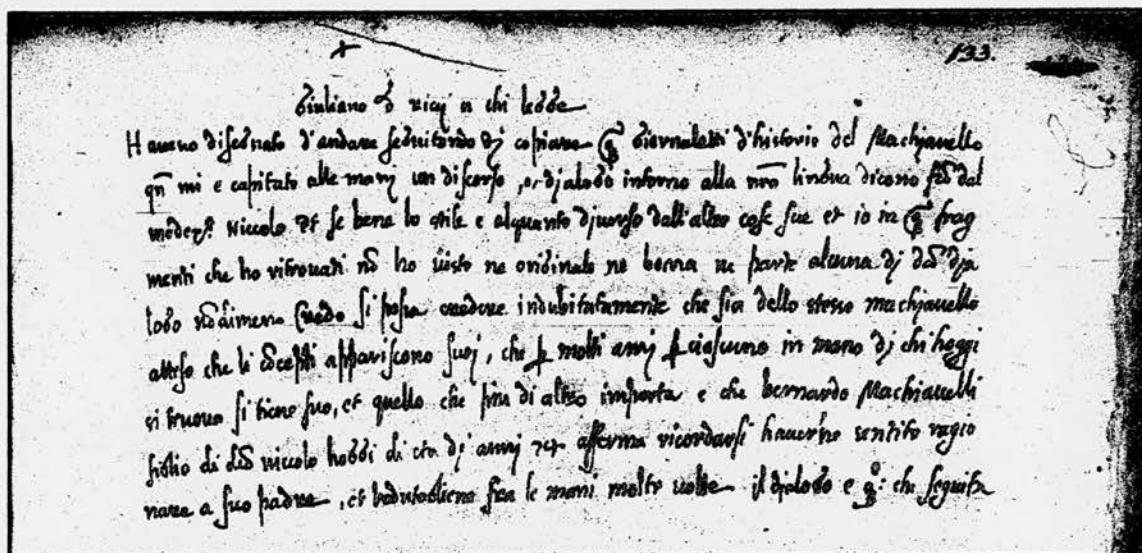 133.
Giuliano de ricci a chi legge
Haveno disegnato d'andare seguitando di copiare q giornaletti d'historie del Machiavello
qn mi e capitato alle mani un discorso, o dialogo intorno alla nra lingua dicono fto dal
medes.º Niccolo et se bene lo stile e alquanto diverso dall'altre cose sue et io in q frag
menti che ho ritrovati nō ho visto ne originale ne bozza ne parte alcuna di dto dia
logo nōdimeno credo si possa credere indubitatamente che sia dello stesso machiavello
atteso che li cōcepti appariscono suoi, che p molti anni p ciascuno in mano di chi hoggi
si truova si tiene suo, et quello che piu di altro importa e che bernardo Machiavelli
figlio di dto niccolo hoggi di eta di anni 74 afferma ricordarsi haverne sentito ragio
nare a suo padre, et vedutogliene fra le mani molte volte il dialogo e qº: che seguita